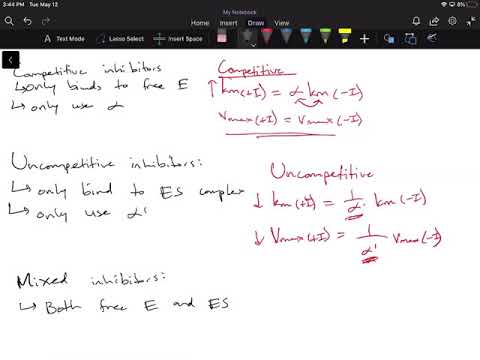 3:44 PM Tue May 12
8%
My Notebook
Insert
Draw
View
Text Mode
Lasso Select
Insert Space
Competitive inhibitors
↳ only binds to free E
↳ only use α
Competitive
↑ km(+I) = α km(-I)
Vmax(+I) = Vmax(-I)
Uncompetitive inhibitors:
↳ only bind to ES complex
↳ only use α'
Uncompetitive
↓ km(+I) = 1/α · km(-I)
↓ Vmax(+I) = 1/α' Vmax(-I)
Mixed inhibitors:
↳ Both free E and ES